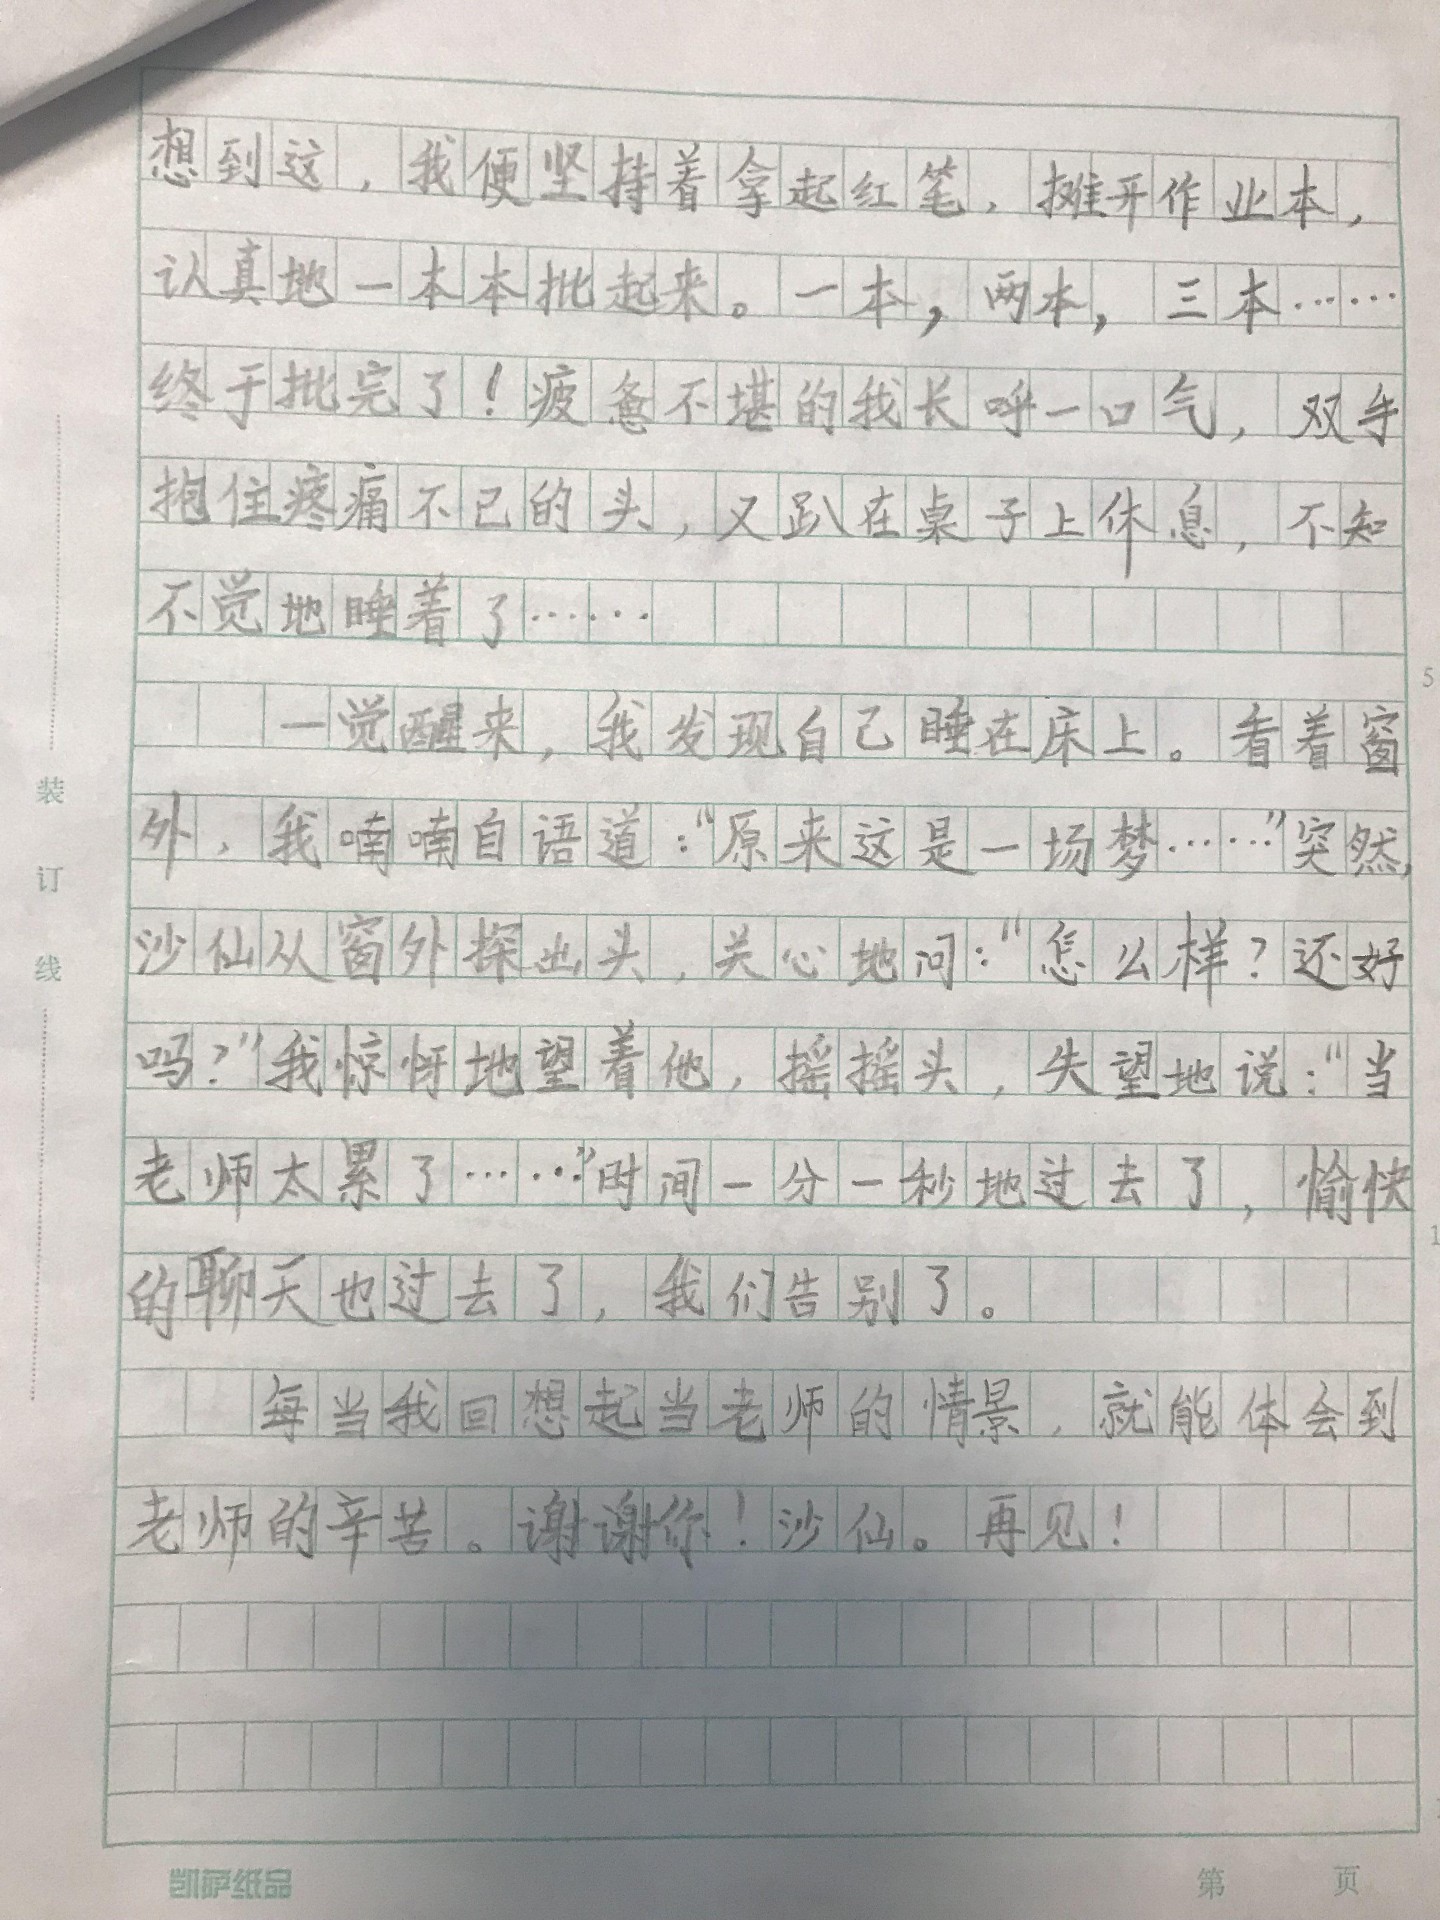 想到这，我便坚持着拿起红笔，摊开作业本，
认真地一本本批起来。一本，两本，三本……
终于批完了！疲惫不堪的我长呼一口气，双手
抱住疼痛不已的头，又趴在桌子上休息，不知
不觉地睡着了……
一觉醒来，我发现自己睡在床上。看着窗
外，我喃喃自语道：“原来这是一场梦……”突然，
沙仙从窗外探出头，关心地问：“怎么样？还好
吗？”我惊讶地望着他，摇摇头，失望地说：“当
老师太累了……”时间一分一秒地过去了，愉快
的聊天也过去了，我们告别了。
每当我回想起当老师的情景，就能体会到
老师的辛苦。谢谢你！沙仙。再见！
装订线
5
凯萨纸品
第 页